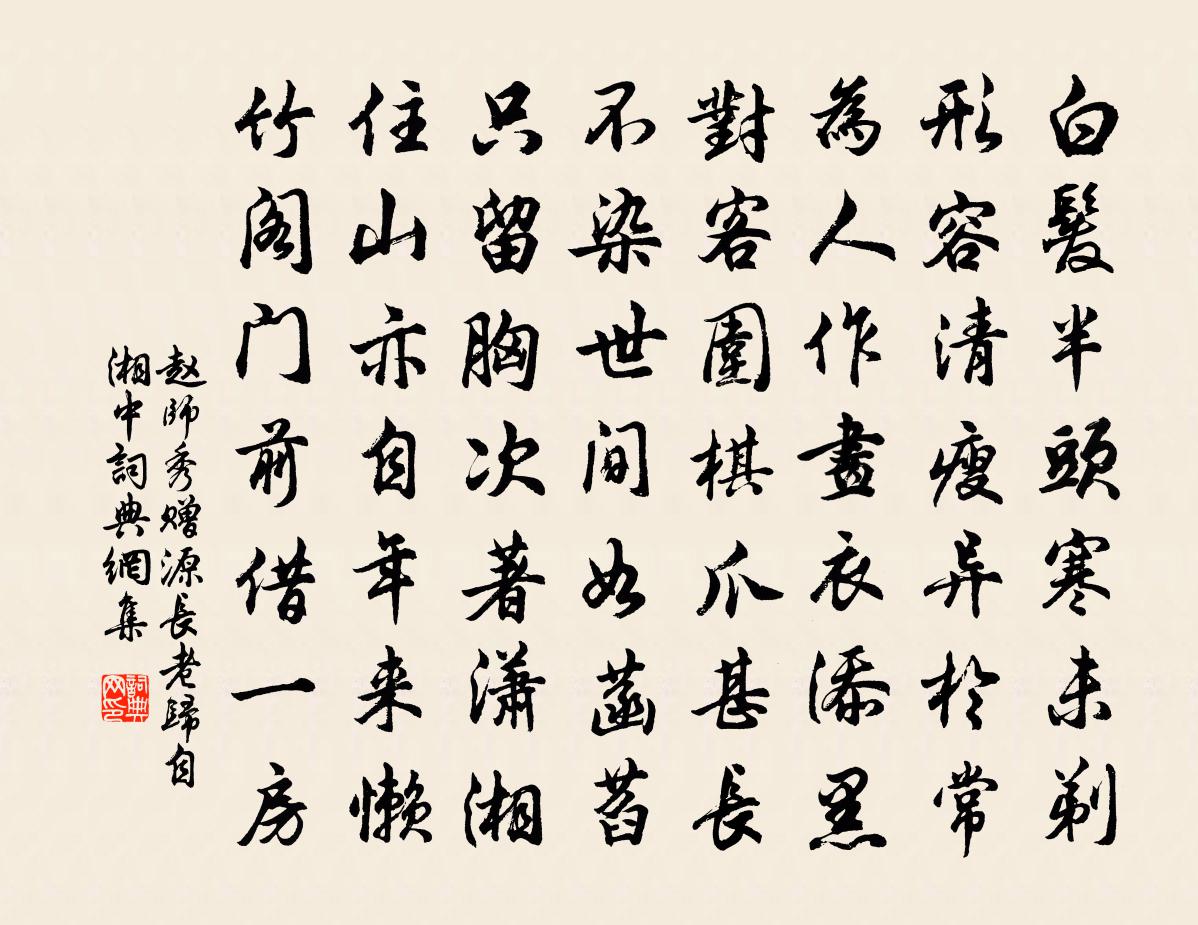 白髮半頭寒未剃
形容清瘦异於常
為人作畫衣添黑
對客圍棋爪甚長
不染世间如菡萏
只留胸次著瀟湘
住山亦自年来懒
竹阁门前借一房
赵師秀赠源長老歸自
湘中詞典網集
詞典网印